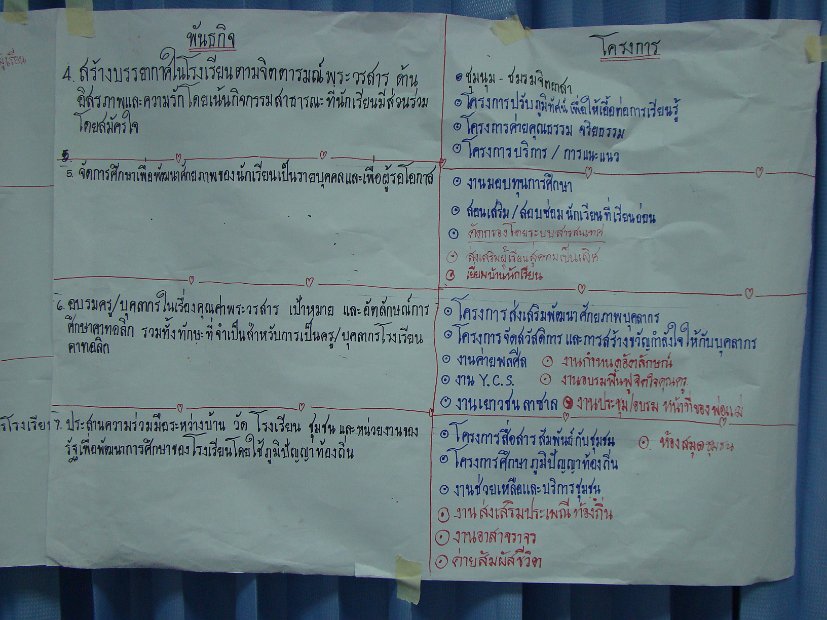 พันธกิจ
4. สร้างบรรยากาศในโรงเรียนตามจิตตารมณ์พระวรสาร ด้าน
อิสรภาพและความรักโดยเน้นกิจกรรมสาธารณะที่นักเรียนมีส่วนร่วม
โดยสมัครใจ
5. จัดการศึกษาเพื่อพัฒนาศักยภาพของนักเรียนเป็นรายบุคคลและเพื่อผู้รอโอกาส
6. อบรมครู/บุคลากรในเรื่องคุณค่าพระวรสาร เป้าหมาย และอัตลักษณ์การ
ศึกษาคาทอลิก รวมทั้งทักษะที่จำเป็นสำหรับการเป็นครู/บุคลากรโรงเรียน
คาทอลิก
7. ประสานความร่วมมือระหว่างบ้าน วัด โรงเรียน ชุมชน และหน่วยงานของ
รัฐเพื่อพัฒนาการศึกษาของโรงเรียนโดยใช้ภูมิปัญญาท้องถิ่น
โครงการ
ชุมนุม - ชมรมจิตอาสา
โครงการปรับภูมิทัศน์ เพื่อให้เอื้อต่อการเรียนรู้
โครงการค่ายคุณธรรม จริยธรรม
โครงการบริการ / การแนะแนว
งานมอบทุนการศึกษา
สอนเสริม / สอบซ่อม นักเรียนที่เรียนอ่อน
คัดกรองโดยระบบสารสนเทศ
ส่งเสริมผู้เรียนสู่ความเป็นเลิศ
เยี่ยมบ้านนักเรียน
โครงการส่งเสริมพัฒนาศักยภาพบุคลากร
โครงการจัดสวัสดิการ และการสร้างขวัญกำลังใจให้กับบุคลากร
งานค่ายพลศีล งานกำหนดอัตลักษณ์
งาน Y.C.S. งานอบรมฟื้นฟูจิตใจคุณครู
งานเยาวชน ลาซาล งานประชุม/อบรม หน้าที่ของพ่อแม่
โครงการสื่อสารสัมพันธ์กับชุมชน ห้องสมุดชุมชน
โครงการศึกษาภูมิปัญญาท้องถิ่น
งานช่วยเหลือและบริการชุมชน
งานส่งเสริมประเพณีท้องถิ่น
งานอาสาจราจร
ค่ายสัมผัสชีวิต